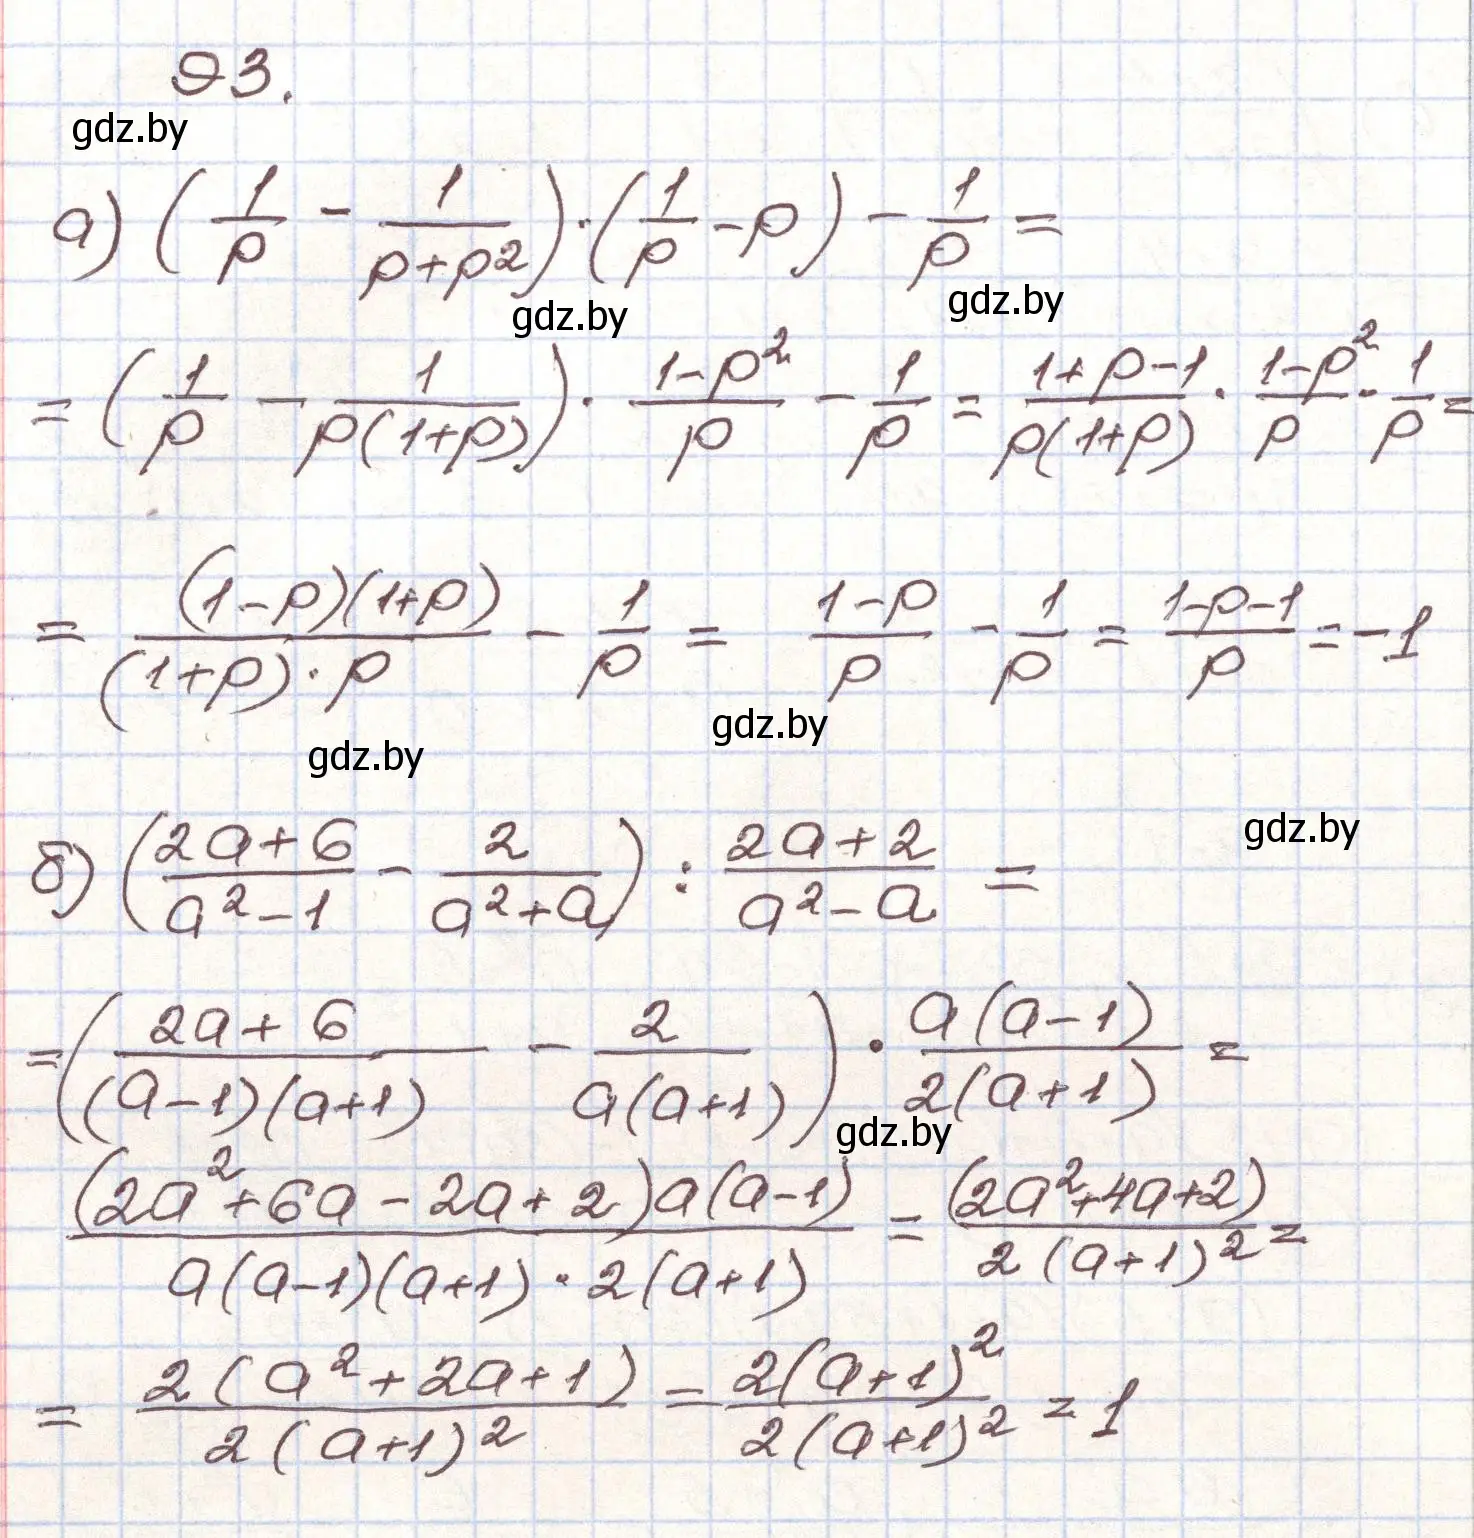 93.
gdz.by
а) (1/p - 1/(p+p²)) · (1/p - p) - 1/p =
gdz.by
gdz.by
= (1/p - 1/(p(1+p))) · (1-p²)/p - 1/p = (1+p-1)/(p(1+p)) · (1-p²)/p · 1/p =
= ((1-p)(1+p))/((1+p)·p) - 1/p = (1-p)/p - 1/p = (1-p-1)/p = -1
gdz.by
gdz.by
б) ((2a+6)/(a²-1) - 2/(a²+a)) : (2a+2)/(a²-a) =
gdz.by
= ((2a+6)/((a-1)(a+1)) - 2/(a(a+1))) · (a(a-1))/(2(a+1)) =
gdz.by
((2a²+6a-2a+2)a(a-1))/(a(a-1)(a+1)·2(a+1)) = (2a²+4a+2)/(2(a+1)²) =
= (2(a²+2a+1))/(2(a+1)²) = (2(a+1)²)/(2(a+1)²) = 1